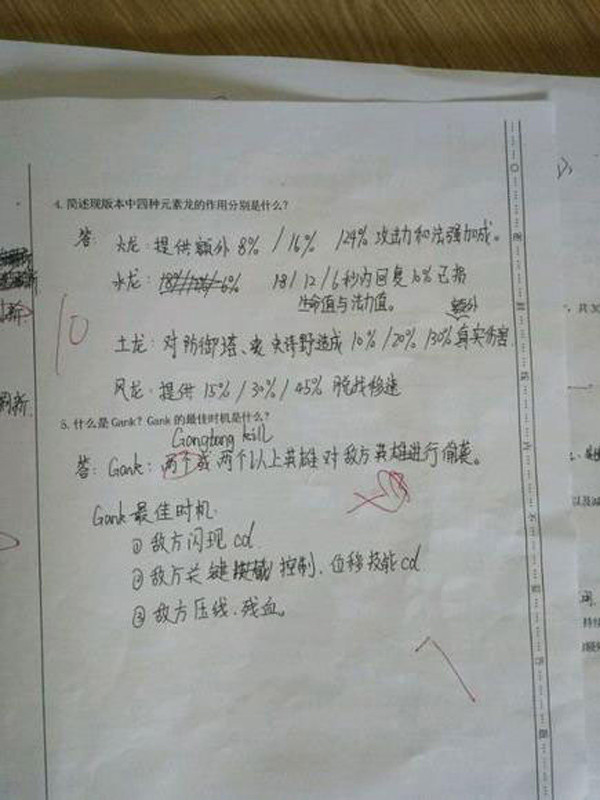 4. 简述现版本中四种元素龙的作用分别是什么?
答: 火龙: 提供额外 8% / 16% / 24% 攻击力和法强加成。
水龙: 18 / 12 / 6 秒内回复 10% 已损
生命值与法力值。
额外
10
土龙: 对防御塔、史诗野造成 10% / 20% / 30% 真实伤害
风龙: 提供 15% / 30% / 45% 脱战移速
5. 什么是 Gank? Gank 的最佳时机是什么?
Gangbang kill
答: Gank: 两个或两个以上英雄对敌方英雄进行偷袭。
Gank 最佳时机:
① 敌方闪现 cd
② 敌方关键 控制、位移技能 cd
③ 敌方压线、残血。
刷新
共30
以及减